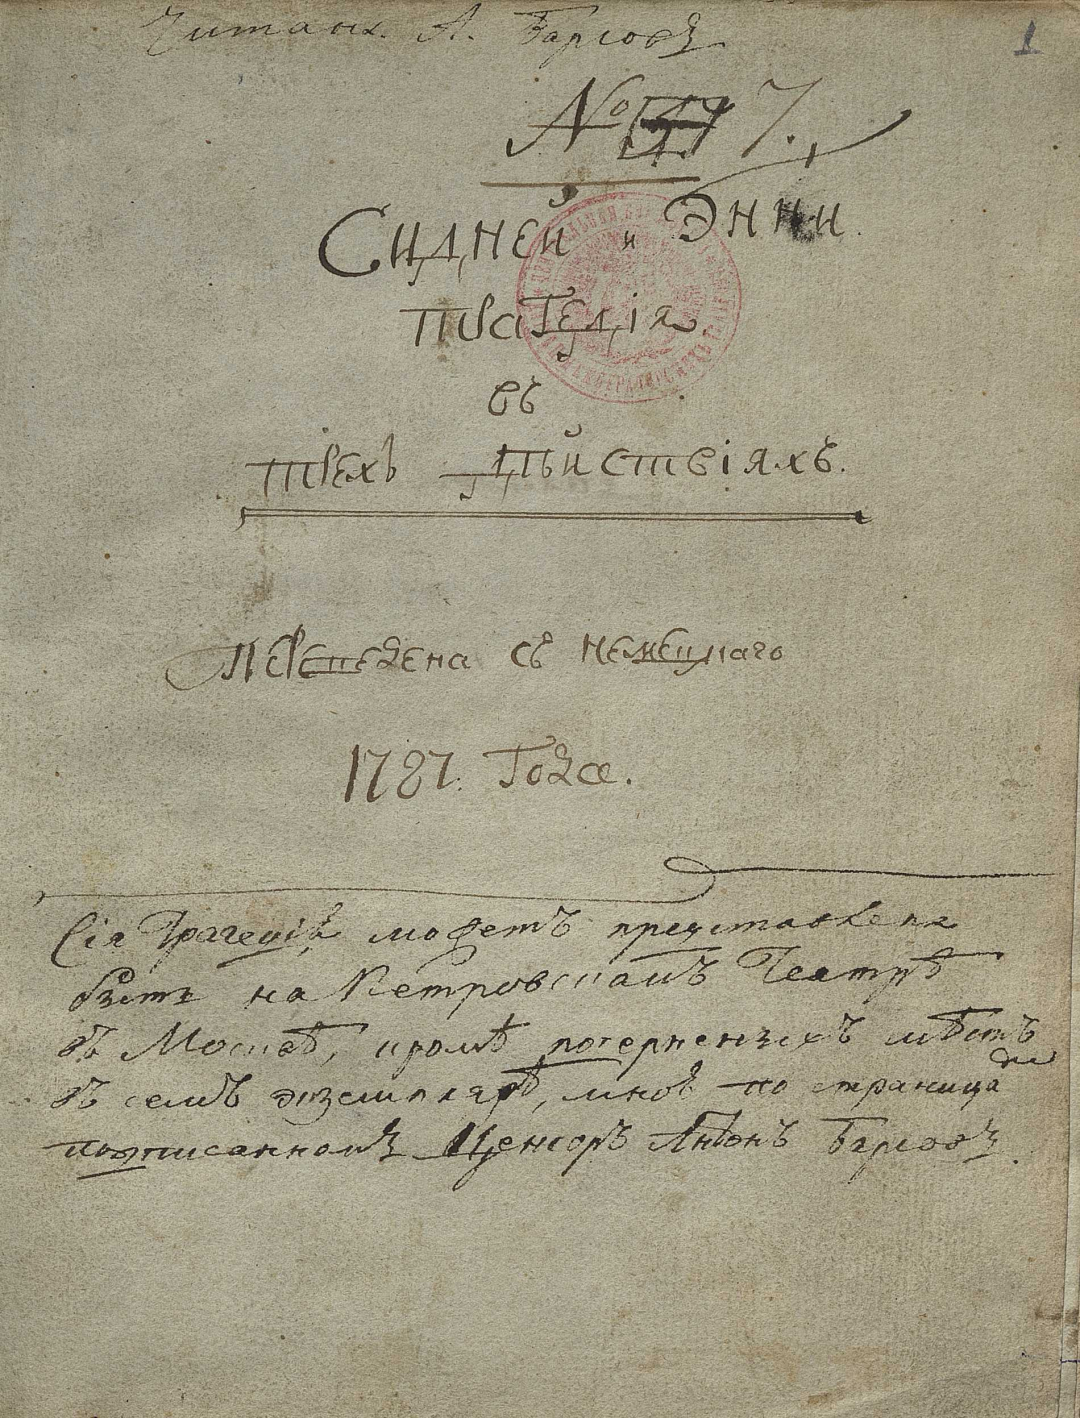 Читалъ. А. Барсовъ
1
№ 7.
Сидней и Энни.
трагедія
въ
трехъ дѣйствіяхъ.
переведена съ немецкаго
1787. Года.
Сія Трагедія можетъ представлена
быть на Петровскомъ Театрѣ
въ Москвѣ, кромѣ почерненныхъ мѣстъ
въ семъ экземплярѣ, мною по страница
мъ
подписанномъ Ценсоръ Антонъ Барсовъ.